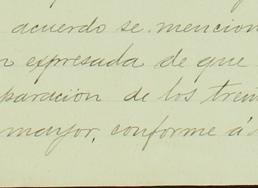 acuerdo se mencion
n expresada de que
paracion de los trein
mayor, conforme á